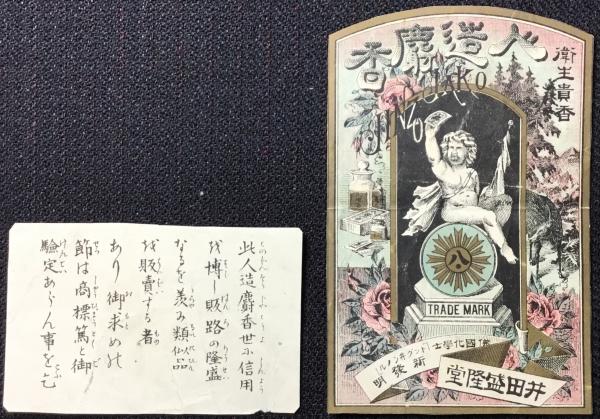 人造麝香
衛生貴香
JINZO JAKO
八
TRADE MARK
國化學士
新發明
井田盛隆堂
此人造麝香世に信用
を博し販路の隆盛
なるを羨み類似品
を販賣する者
あり御求めの
節は商標篤と御
驗定あらん事を乞